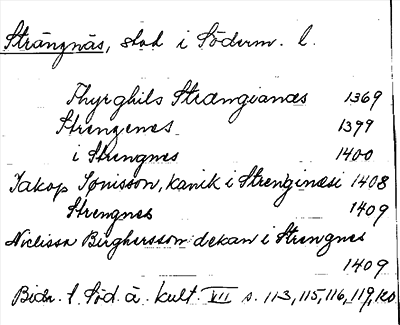 Strängnäs, stad i Söderm. l.
Thyrghils Strængianæs 1369
Strengenes 1399
i Strengnes 1400
Jakop Jønisson, kanik i Strenginæsi 1408
Strengnes 1409
Niclissa Birghersson dekan i Strengnes
1409
Bidr. t. Söd. ä. kult. VII s. 113, 115, 116, 119, 120